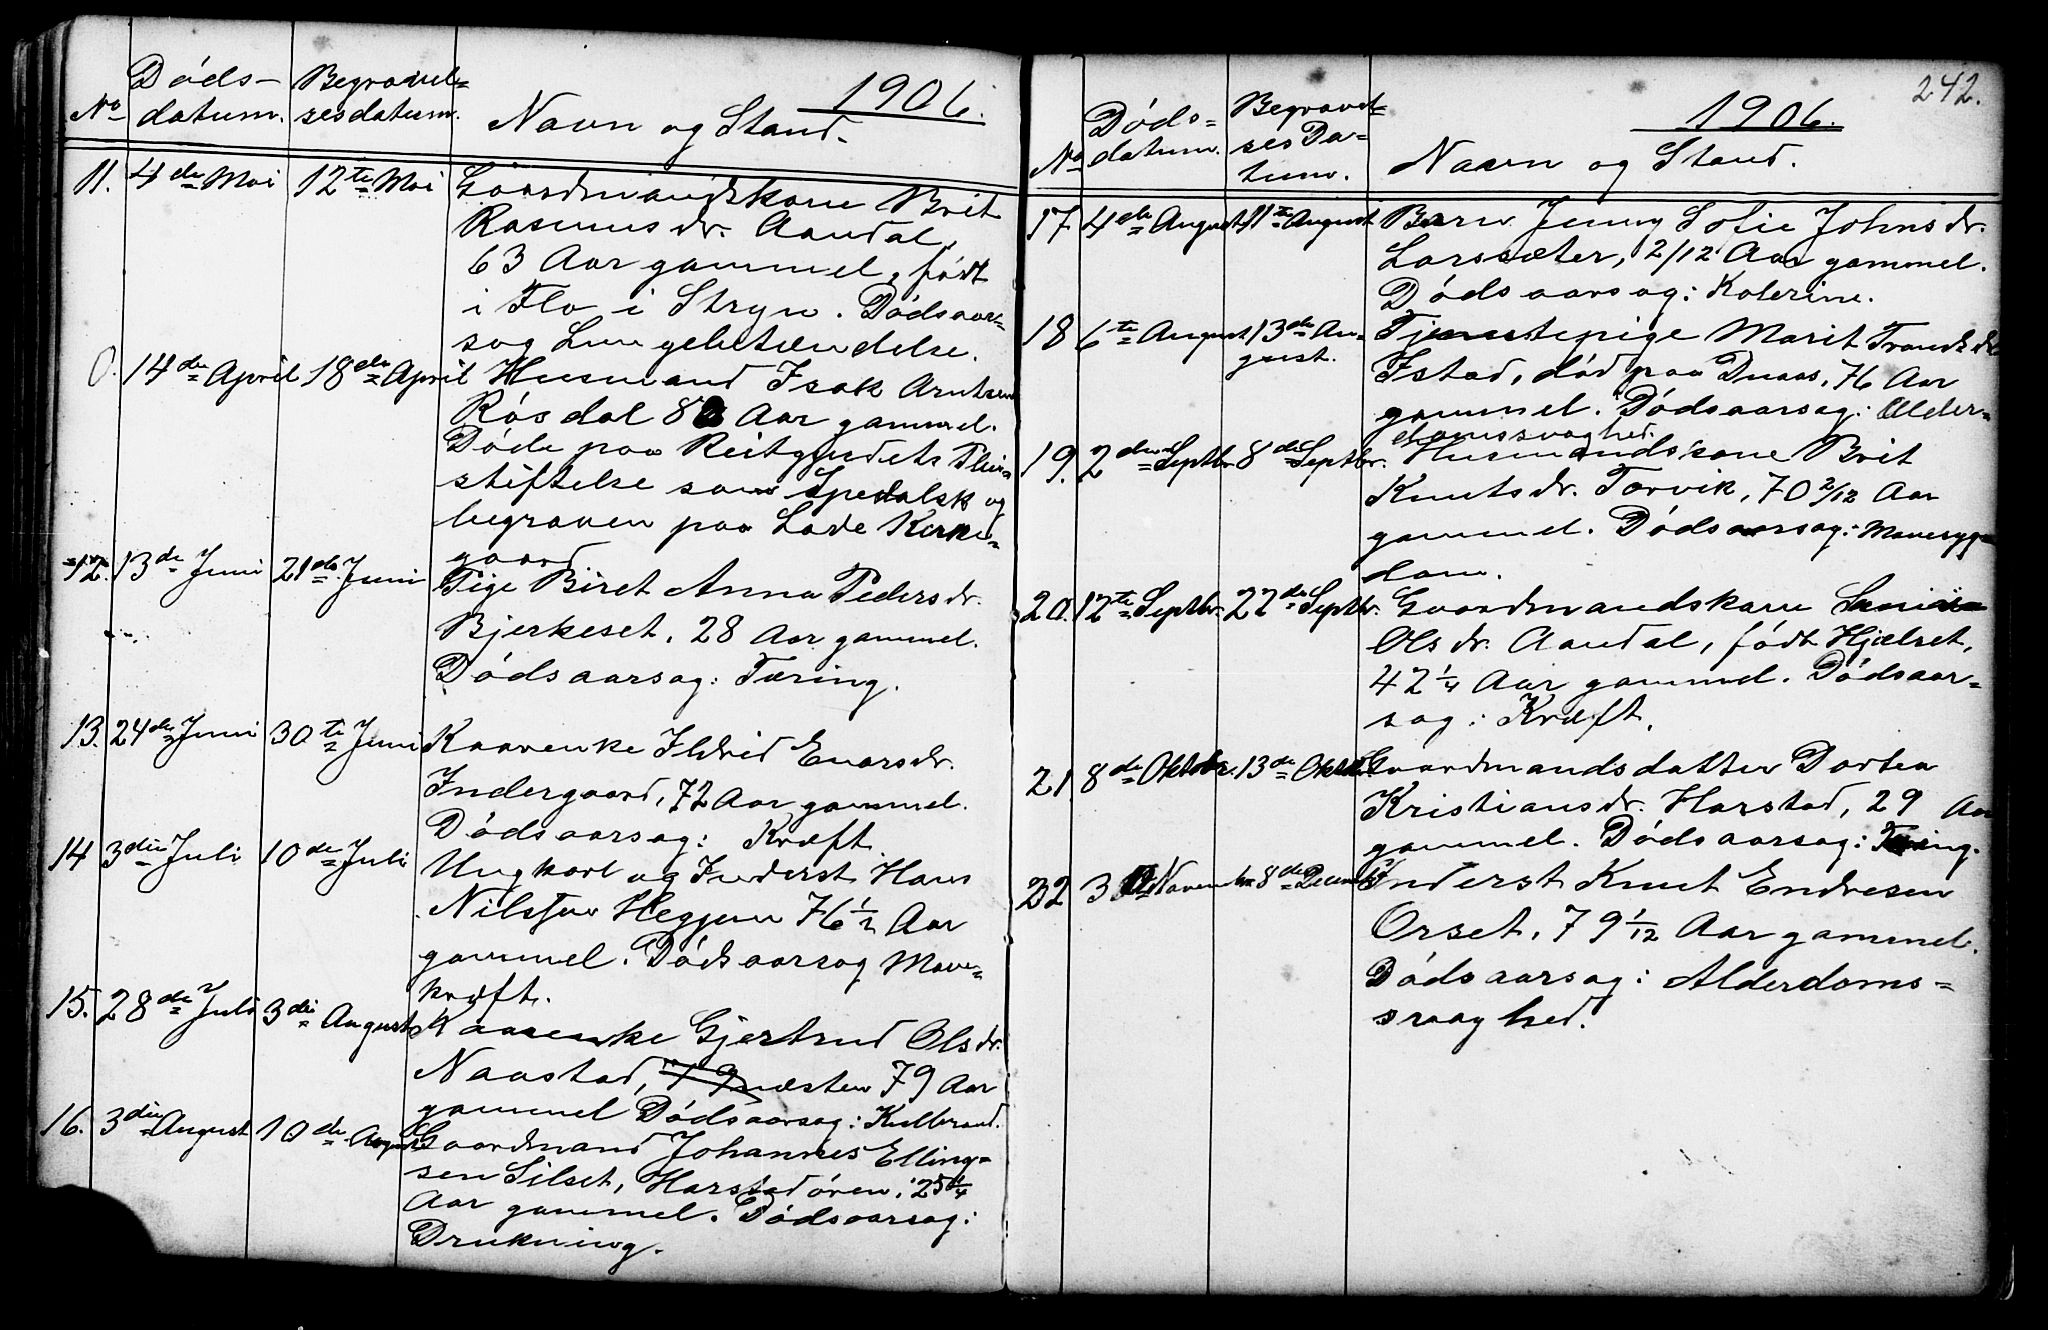 1906.
No
Døds-
datum.
Begravel-
sesdatum.
Navn og Stand.
11. 4de Mai 12te Mai Gaardmandskone Brit
Rasmusdr. Aandal,
63 Aar gammel, født
i Flo i Stryn. Dødsaar-
sag Lungebetændelse.
0. 14de April 18de April Husmand Isak Arntsen
Røsdal 82 Aar gammel.
Døde paa Reitgjerdets Pleie-
stiftelse som Spedalsk og
begraven paa Lade Kirke-
gaard
12. 13de Juni 21de Juni Pige Beret Anna Pedersdr.
Bjerkeset, 28 Aar gammel.
Dødsaarsag: Tæring.
13. 24de Juni 30te Juni Kaarenke Ildrid Evarsdr.
Indergaard, 72 Aar gammel.
Dødsaarsag: Kræft.
14 3die Juli 10de Juli Ungkarl og Inderst Hans
Nilssen Heggem 76 1/2 Aar
gammel. Dødsaarsag Mave-
kræft.
15. 28de Juli 3die August Kaarenke Gjertrud Olsdr.
Naastad, næsten 79 Aar
gammel Dødsaarsag: Kulbrand.
16. 3die August 10de August Gaardmand Johannes Elling-
sen Silset, Harstadøren, 25 1/4
Aar gammel. Dødsaarsag:
Drukning.
242.
1906.
No
Døds-
datum.
Begravel-
ses Da-
tum.
Navn og Stand.
17 4de August 11te August Barn Jenny Sofie Johnsdr.
Larssæter, 2/12 Aar gammel.
Dødsaarsag: Katerine.
18 6te August 13de Au-
gust. Tjenestepige Marit Trondsdr
Istad, død paa Duaas, 76 Aar
gammel. Dødsaarsag: Alder-
domssvaghed.
19. 2den Septbr 8de Septbr. Husmandskone Brit
Knutsdr. Torvik, 70 2/12 Aar
gammel. Dødsaarsag: Mavesyg-
dom.
20. 12te Septbr. 22de Septbr. Gaardmandskone
Olsdr. Aandal, født Hjelset,
42 1/4 Aar gammel. Dødsaar-
sag: Kræft.
21. 8de Oktobr. 13de Oktobr Gaardmandsdatter Dortea
Kristiansdr. Harstad, 29 Aar
gammel. Dødsaarsag: Tæring.
22 30te Novembr 8de Decembr Inderst Knut Endresen
Orset, 79 1/12 Aar gammel.
Dødsaarsag: Alderdoms-
svaghed.